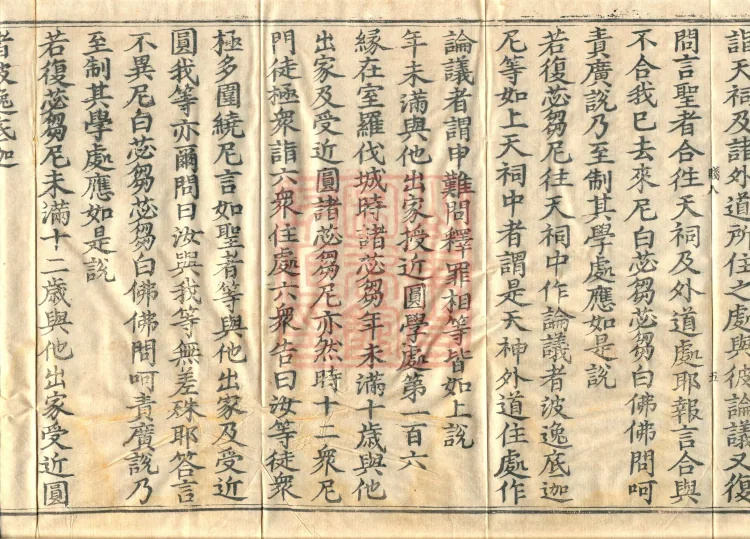 詣天祠及諸外道所住之處與彼論議又復
賤八 五
問言聖者合往天祠及外道處耶報言合與
不合我已去來尼白苾芻苾芻白佛佛問呵
責廣說乃至制其學處應如是說
若復苾芻尼往天祠中作論議者波逸底迦
尼等如上天祠中者謂是天神外道住處作
論議者謂申難問釋罪相等皆如上說
年未滿與他出家授近圓學處第一百六
緣在室羅伐城時諸苾芻年未滿十歲與他
出家及受近圓諸苾芻尼亦然時十二衆尼
門徒極衆詣六衆住處六衆告曰汝等徒衆
極多圍繞尼言如聖者等與他出家及受近
圓我等亦爾問曰汝與我等無差殊耶答言
不異尼白苾芻苾芻白佛佛問呵責廣說乃
至制其學處應如是說
若復苾芻尼未滿十二歲與他出家受近圓
者波逸底迦